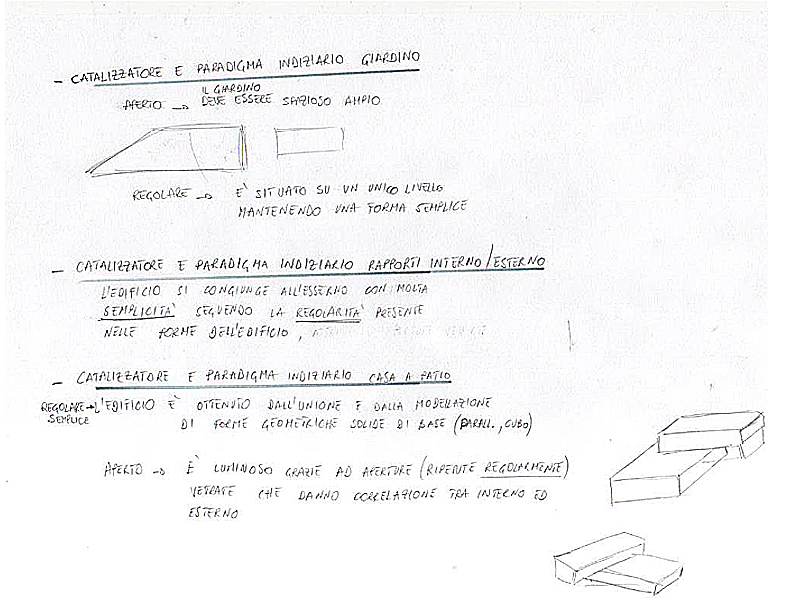 - CATALIZZATORE E PARADIGMA INDIZIARIO GIARDINO
IL GIARDINO
APERTO → DEVE ESSERE SPAZIOSO AMPIO
REGOLARE → E' SITUATO SU UN UNICO LIVELLO
MANTENENDO UNA FORMA SEMPLICE
- CATALIZZATORE E PARADIGMA INDIZIARIO RAPPORTI INTERNO/ESTERNO
L'EDIFICIO SI CONGIUNGE ALL'ESSERNO CON MOLTA
SEMPLICITA' SEGUENDO LA REGOLARITA' PRESENTE
NELLE FORME DELL'EDIFICIO,
- CATALIZZATORE E PARADIGMA INDIZIARIO CASA A PATIO
REGOLARE → L'EDIFICIO E' OTTENUTO DALL'UNIONE E DALLA MODELLAZIONE
SEMPLICE
DI FORME GEOMETRICHE SOLIDE DI BASE (PARALL., CUBO)
APERTO → E' LUMINOSO GRAZIE AD APERTURE (RIPETUTE REGOLARMENTE)
VETRATE CHE DANNO CORRELAZIONE TRA INTERNO ED
ESTERNO